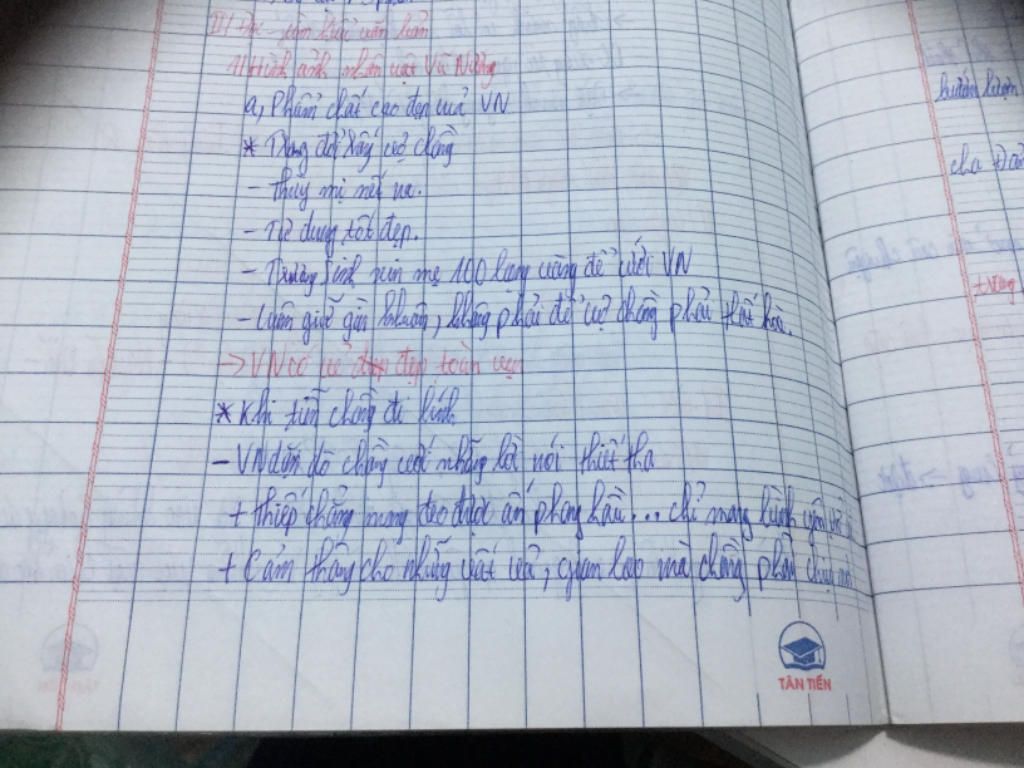 II, Đọc - tìm hiểu văn bản
1, Hình ảnh nhân vật Vũ Nương
a, Phẩm chất cao đẹp của VN
* Trong đời sống vợ chồng
- Thuỳ mị nết na.
- Tư dung tốt đẹp.
- Trương Sinh xin mẹ 100 lạng vàng để cưới VN
- Luôn giữ gìn khuôn, không phải để vợ chồng phải thất hoà.
→ VN có vẻ đẹp đẹp toàn vẹn
* Khi tiễn chồng đi lính
- VN dặn dò chồng với những lời nói thiết tha
+ Thiếp chẳng mong đeo được ấn phong hầu... chỉ mong
+ Cảm thông cho những vất vả, gian lao mà chồng phải chịu
TÂN TIẾN
cha Đản
trong